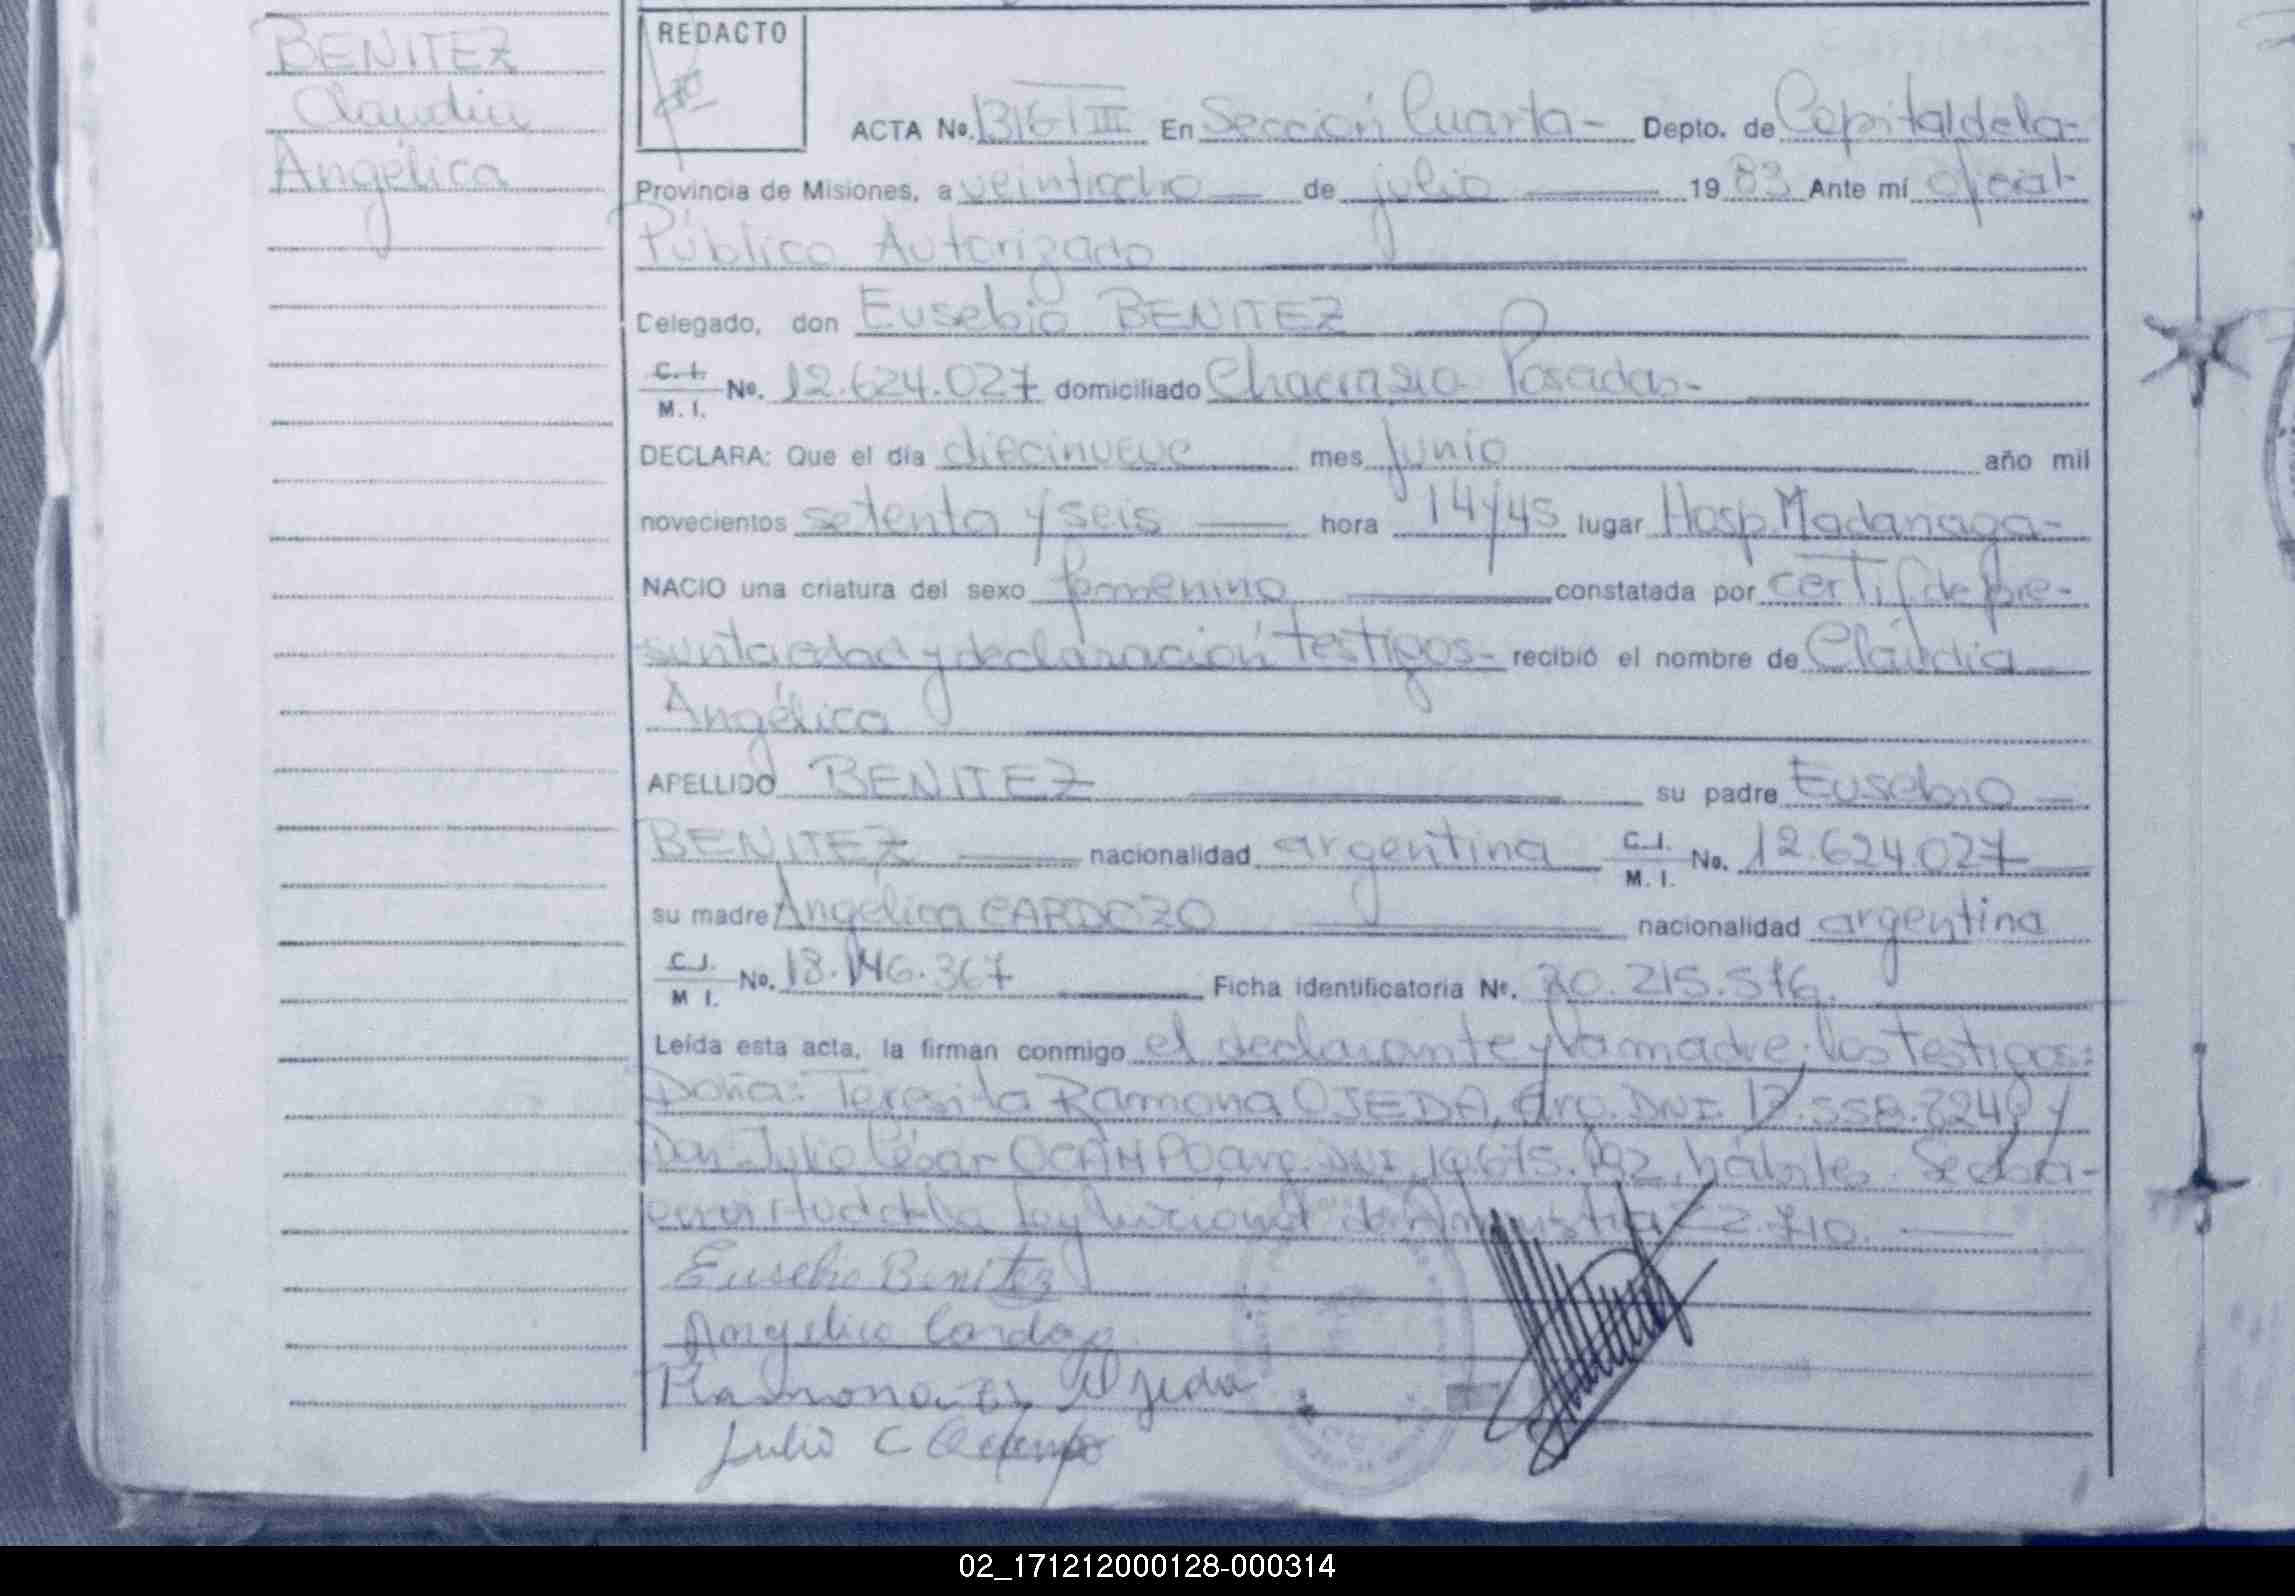 BENITEZ
Claudia
Angélica
REDACTO
ACTA No. 1316 III En Sección Cuarta - Depto. de Capital de la -
Provincia de Misiones, a veintiocho de julio 1983 Ante mí oficial
Público Autorizado
Delegado, don Eusebio BENITEZ
C.I. M.I. No. 12.624.027 domiciliado Chacra Posadas -
DECLARA: Que el día diecinueve mes junio año mil
novecientos setenta y seis hora 14 y 45 lugar Hosp. Madariaga -
NACIO una criatura del sexo femenino constatada por certif de pre-
sunta edad y declaración testigos - recibió el nombre de Claudia
Angélica
APELLIDO BENITEZ su padre Eusebio
BENITEZ nacionalidad argentina C.I. M.I. No. 12.624.027
su madre Angélica CARDOZO nacionalidad argentina
C.I. M I. No. 18.146.367 Ficha identificatoria No.
Leída esta acta, la firman conmigo el declarante y la madre; los testigos:
Doña: Teresita Ramona OJEDA, arg. DNI.
Don Julio César OCAMPO arg. DNI. hábiles. Se labra
en virtud de la Ley Nacional de Amnistía 22.710.
Eusebio Benitez
Angelica Cardozo
Ramona Ojeda
Julio C Ocampo
02_171212000128-000314